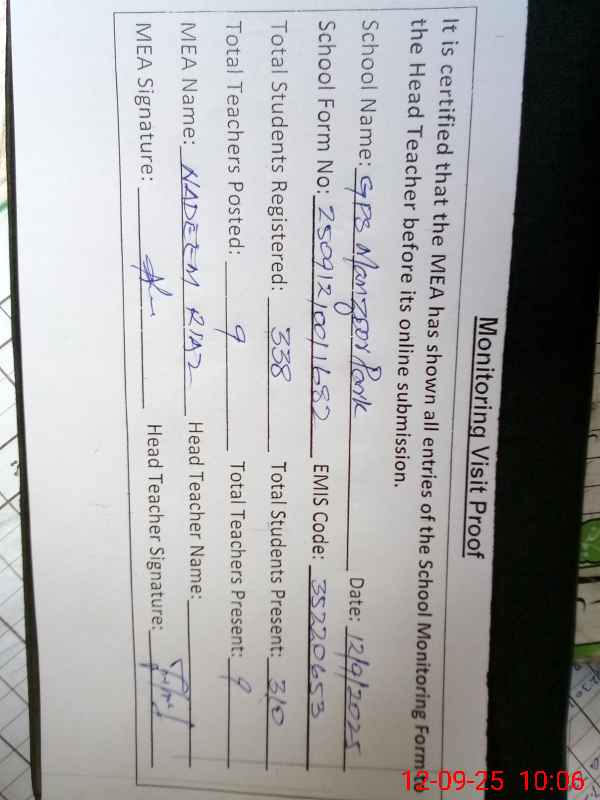 Monitoring Visit Proof
It is certified that the MEA has shown all entries of the School Monitoring Form to
the Head Teacher before its online submission.
School Name: GPS Manzoor Park Date: 12/9/2025
School Form No: 250912/001682 EMIS Code: 35220653
Total Students Registered: 338 Total Students Present: 310
Total Teachers Posted: 9 Total Teachers Present: 9
MEA Name: NADEEM RIAZ Head Teacher Name:
MEA Signature: Head Teacher Signature:
12-09-25 10:06